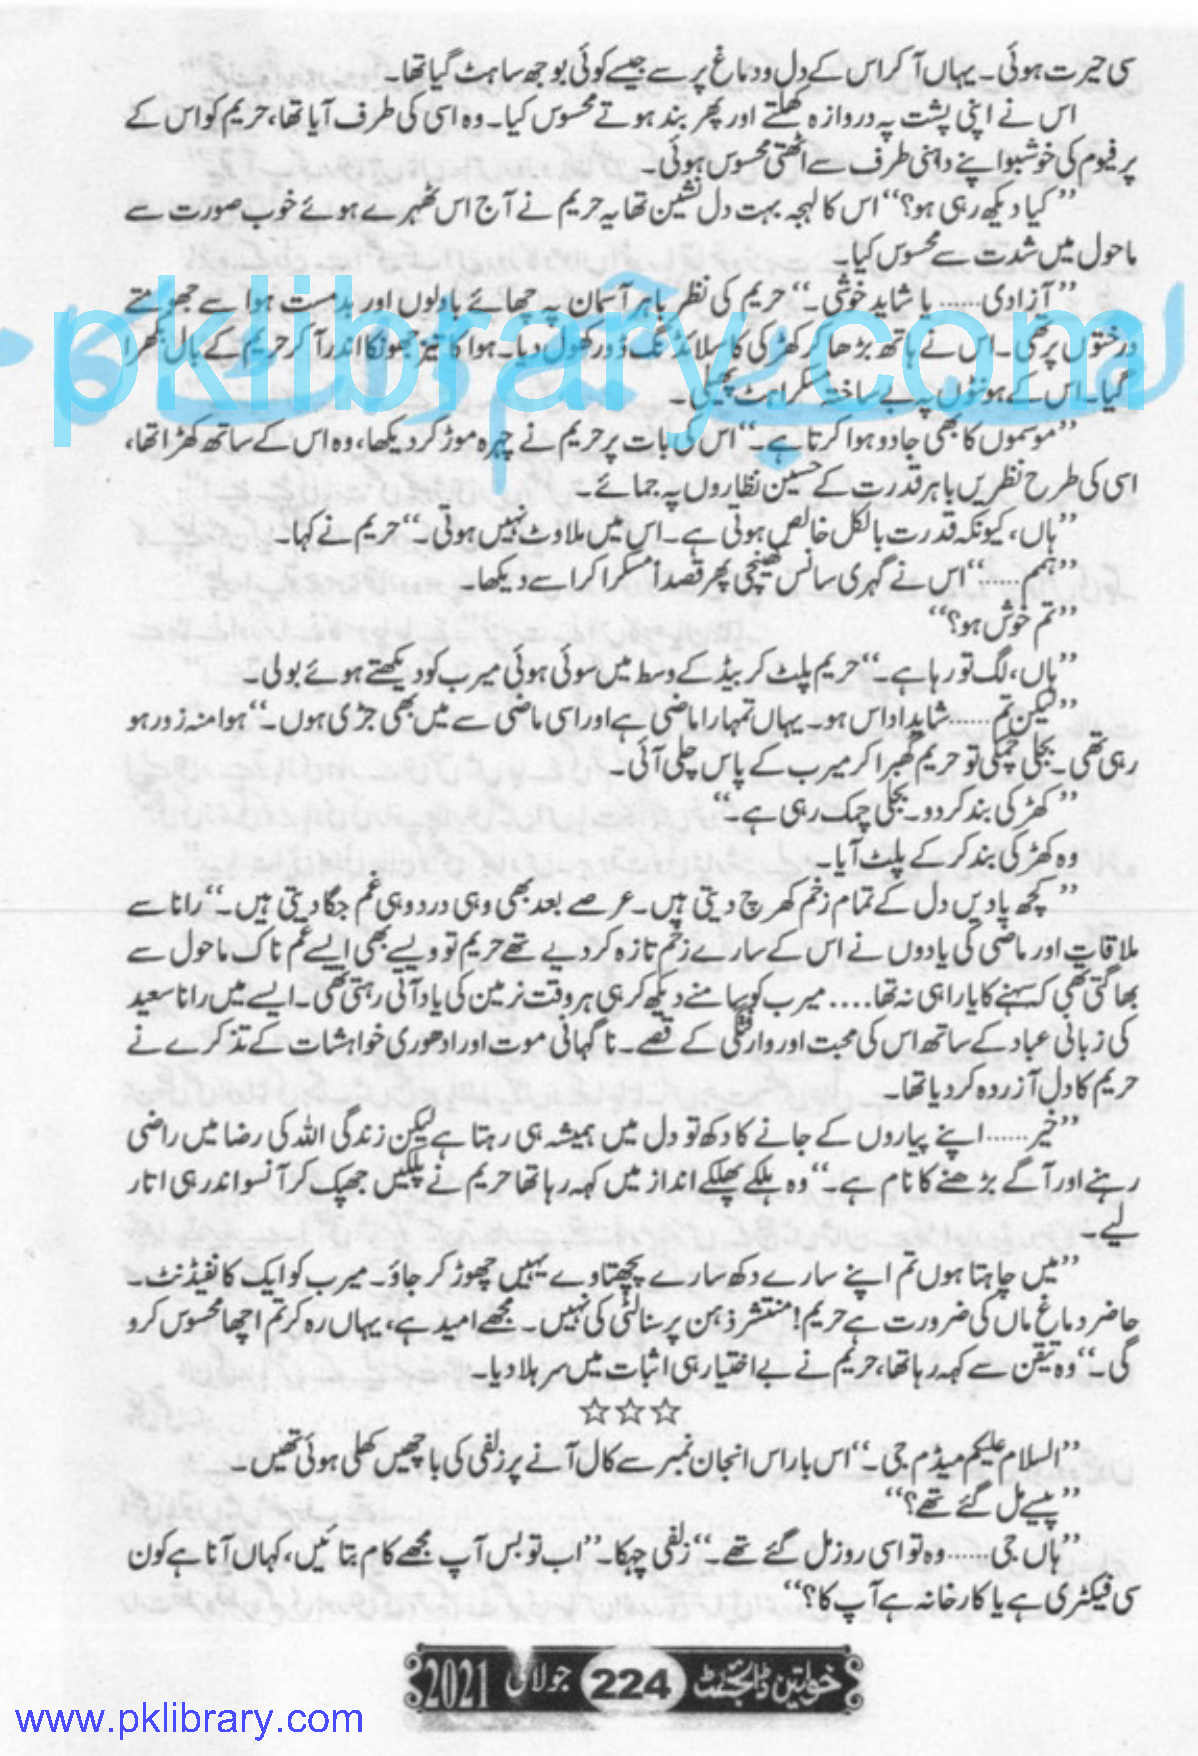 سی حیرت ہوئی۔ یہاں آ کر اس کے دل و دماغ پر سے جیسے کوئی بوجھ سا ہٹ گیا تھا۔
اس نے اپنی پشت پہ دروازہ کھلتے اور پھر بند ہوتے محسوس کیا۔ وہ اسی کی طرف آیا تھا، حریم کو اس کے
پرفیوم کی خوشبو اپنے داہنی طرف سے اٹھتی محسوس ہوئی۔
”کیا دیکھ رہی ہو؟“ اس کا لہجہ بہت دل نشین تھا یہ حریم نے آج اس ٹھہرے ہوئے خوب صورت سے
ماحول میں شدت سے محسوس کیا۔
”آزادی...... یا شاید خوشی۔“ حریم کی نظر باہر آسمان پہ چھائے بادلوں اور بدمست ہوا سے جھومتے
درختوں پر تھی۔ اس نے ہاتھ بڑھا کر کھڑکی کا سلائڈنگ ڈور کھول دیا۔ ہوا کا تیز جھونکا اندر آ کر حریم کے بال بکھرا
گیا۔ اس کے ہونٹوں پہ بے ساختہ مسکراہٹ پھیلی۔
pklibrary.com
”موسموں کا بھی جادو ہوا کرتا ہے۔“ اس کی بات پر حریم نے چہرہ موڑ کر دیکھا، وہ اس کے ساتھ کھڑا تھا،
اسی کی طرح نظریں باہر قدرت کے حسین نظاروں پہ جمائے۔
”ہاں، کیونکہ قدرت بالکل خالص ہوتی ہے۔ اس میں ملاوٹ نہیں ہوتی۔“ حریم نے کہا۔
”ہمم......“ اس نے گہری سانس کھینچی پھر قصداً مسکرا کر اسے دیکھا۔
”تم خوش ہو؟“
”ہاں، لگ تو رہا ہے۔“ حریم پلٹ کر بیڈ کے وسط میں سوئی ہوئی میرب کو دیکھتے ہوئے بولی۔
”لیکن تم...... شاید اداس ہو۔ یہاں تمہارا ماضی ہے اور اسی ماضی سے میں بھی جڑی ہوں۔“ ہوا منہ زور ہو
رہی تھی۔ بجلی چمکی تو حریم گھبرا کر میرب کے پاس چلی آئی۔
”کھڑکی بند کر دو۔ بجلی چمک رہی ہے۔“
وہ کھڑکی بند کر کے پلٹ آیا۔
”کچھ یادیں دل کے تمام زخم کھرچ دیتی ہیں۔ عرصے بعد بھی وہی درد وہی غم جگا دیتی ہیں۔“ رانا سے
ملاقات اور ماضی کی یادوں نے اس کے سارے زخم تازہ کر دیے تھے حریم تو ویسے بھی ایسے غم ناک ماحول سے
بھاگتی تھی کہ سہنے کا یارا ہی نہ تھا.... میرب کو سامنے دیکھ کر ہی ہر وقت نرمین کی یاد آتی رہتی تھی۔ ایسے میں رانا سعید
کی زبانی عباد کے ساتھ اس کی محبت اور وارفتگی کے قصے۔ ناگہانی موت اور ادھوری خواہشات کے تذکرے نے
حریم کا دل آزردہ کر دیا تھا۔
”خیر...... اپنے پیاروں کے جانے کا دکھ تو دل میں ہمیشہ ہی رہتا ہے لیکن زندگی اللہ کی رضا میں راضی
رہنے اور آگے بڑھنے کا نام ہے۔“ وہ ہلکے پھلکے انداز میں کہہ رہا تھا حریم نے پلکیں جھپک کر آنسو اندر ہی اتار
لیے۔
”میں چاہتا ہوں تم اپنے سارے دکھ سارے پچھتاوے یہیں چھوڑ کر جاؤ۔ میرب کو ایک کانفیڈنٹ۔
حاضر دماغ ماں کی ضرورت ہے حریم! منتشر ذہن پرسنالٹی کی نہیں۔ مجھے امید ہے، یہاں رہ کر تم اچھا محسوس کرو
گی۔“ وہ تیقن سے کہہ رہا تھا، حریم نے بے اختیار ہی اثبات میں سر ہلا دیا۔
☆☆☆
”السلام علیکم میڈم جی۔“ اس بار اس انجان نمبر سے کال آنے پر زلفی کی باچھیں کھلی ہوئی تھیں۔
”پیسے مل گئے تھے؟“
”ہاں جی...... وہ تو اسی روز مل گئے تھے۔“ زلفی چہکا۔ ”اب تو بس آپ مجھے کام بتائیں، کہاں آنا ہے کون
سی فیکٹری ہے یا کارخانہ ہے آپ کا؟“
خواتین ڈائجسٹ 224 جولائی 2021
www.pklibrary.com